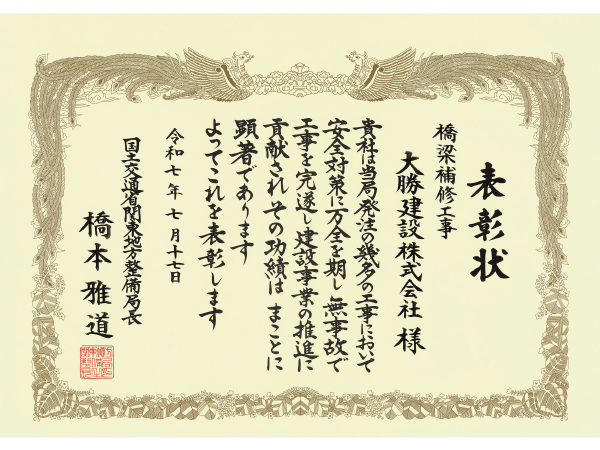 表彰状
橋梁補修工事
大勝建設株式会社 様
貴社は当局発注の幾多の工事において
安全対策に万全を期し無事故で
工事を完遂し建設事業の推進に
貢献されその功績はまことに
顕著であります
よってこれを表彰します
令和七年七月十七日
国土交通省関東地方整備局長
橋本雅道